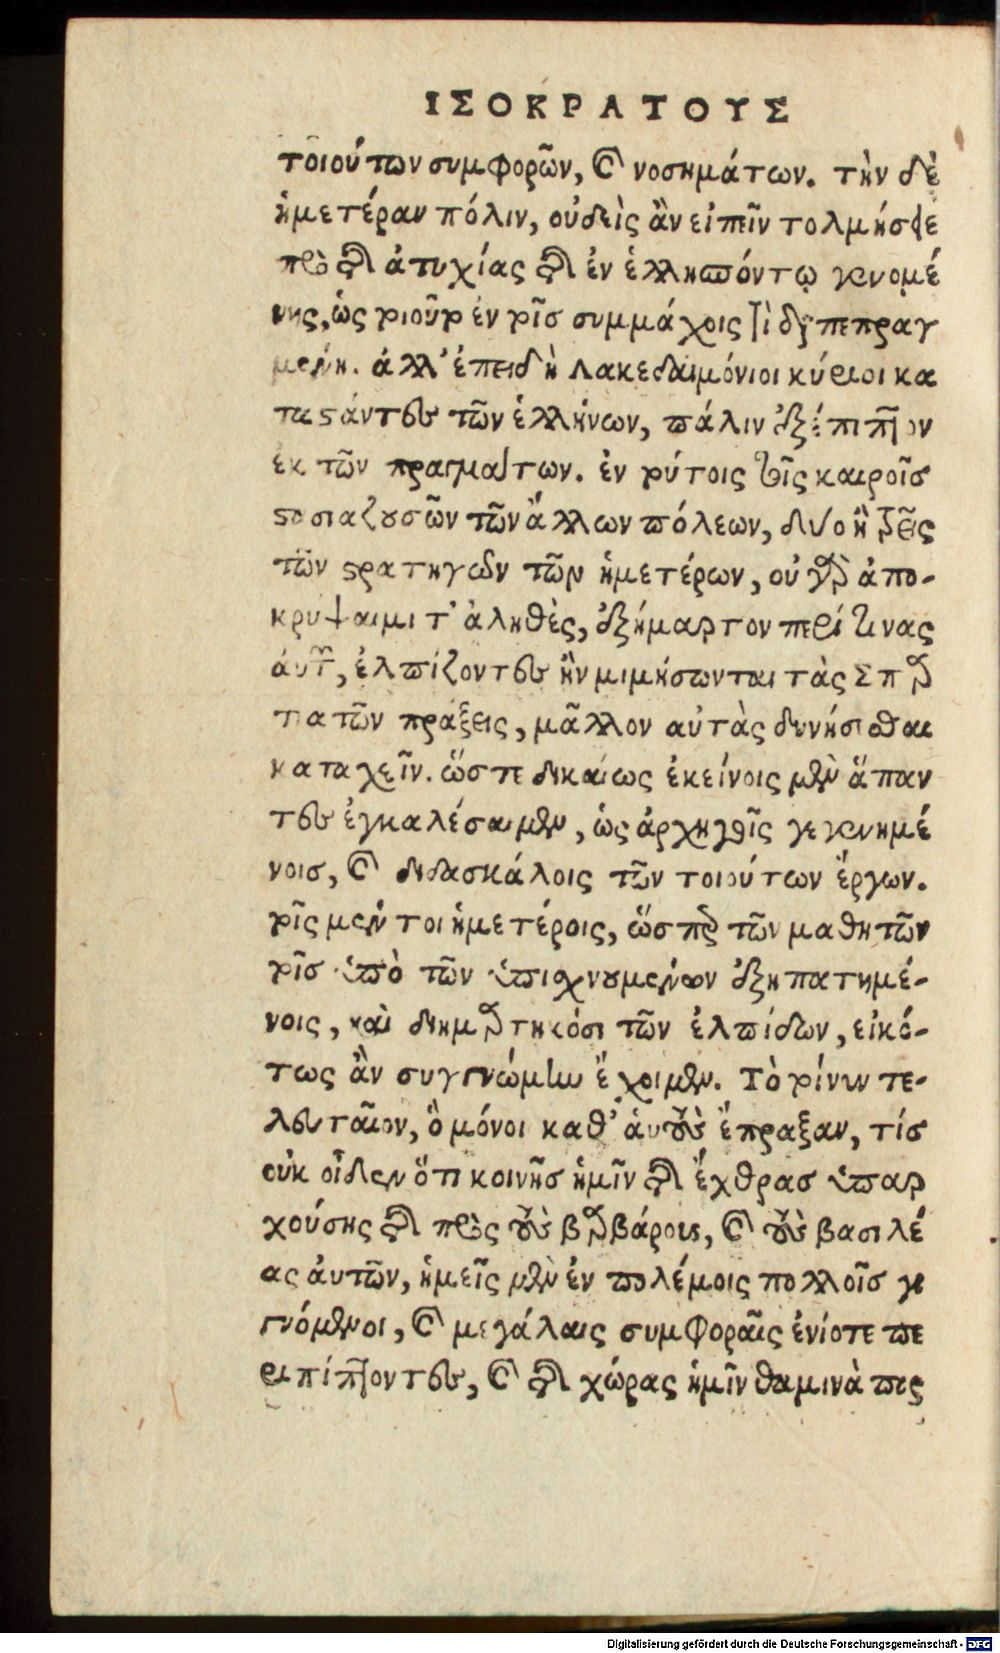 ΙΣΟΚΡΑΤΟΥΣ
τοιούτων συμφορῶν, καὶ νοσημάτων. τὴν δὲ
ἡμετέραν πόλιν, οὐδεὶς ἂν εἰπεῖν τολμήσειε
πρὸ τῆς ἀτυχίας τῆς ἐν ἑλλησπόντῳ γενομέ
νης, ὡς τοιοῦτον ἐν τοῖς συμμάχοις τὶ διαπεπραγ
μένη. ἀλλ' ἐπειδὴ Λακεδαιμόνιοι κύριοι κα
ταστάντες τῶν ἑλλήνων, πάλιν ἐξέπιπτον
ἐκ τῶν πραγμάτων. ἐν τούτοις τοῖς καιροῖς
στασιαζουσῶν τῶν ἄλλων πόλεων, δύο ἢ τρεῖς
τῶν στρατηγῶν τῶν ἡμετέρων, οὐ γὰρ ἀπο-
κρύψαιμι τ' ἀληθὲς, ἐξήμαρτον περί τινας
αὐτῶν, ἐλπίζοντες ἢν μιμήσωνται τὰς Σπαρ
τιατῶν πράξεις, μᾶλλον αὐτὰς δυνήσεσθαι
κατασχεῖν. ὥστε δικαίως ἐκείνοις μὲν ἅπαν
τες ἐγκαλέσαιμεν, ὡς ἀρχηγοῖς γεγενημέ
νοις, καὶ διδασκάλοις τῶν τοιούτων ἔργων.
τοῖς μέν τοι ἡμετέροις, ὥσπερ τῶν μαθητῶν
τοῖς ὑπὸ τῶν ὑπισχνουμένων ἐξηπατημέ-
νοις, καὶ διημαρτηκόσι τῶν ἐλπίδων, εἰκό-
τως ἂν συγγνώμην ἔχοιμεν. Τὸ τοίνυν τε-
λευταῖον, ὃ μόνοι καθ' αὑτοὺς ἔπραξαν, τίς
οὐκ οἶδεν ὅτι κοινῆς ἡμῖν τῆς ἔχθρας ὑπαρ
χούσης τῆς πρὸς τοὺς βαρβάρους, καὶ τοὺς βασιλέ
ας αὐτῶν, ἡμεῖς μὲν ἐν πολέμοις πολλοῖς γι
γνόμενοι, καὶ μεγάλαις συμφοραῖς ἐνίοτε πε
ριπίπτοντες, καὶ τῆς χώρας ἡμῖν θαμινὰ πορ
Digitalisierung gefördert durch die Deutsche Forschungsgemeinschaft - DFG